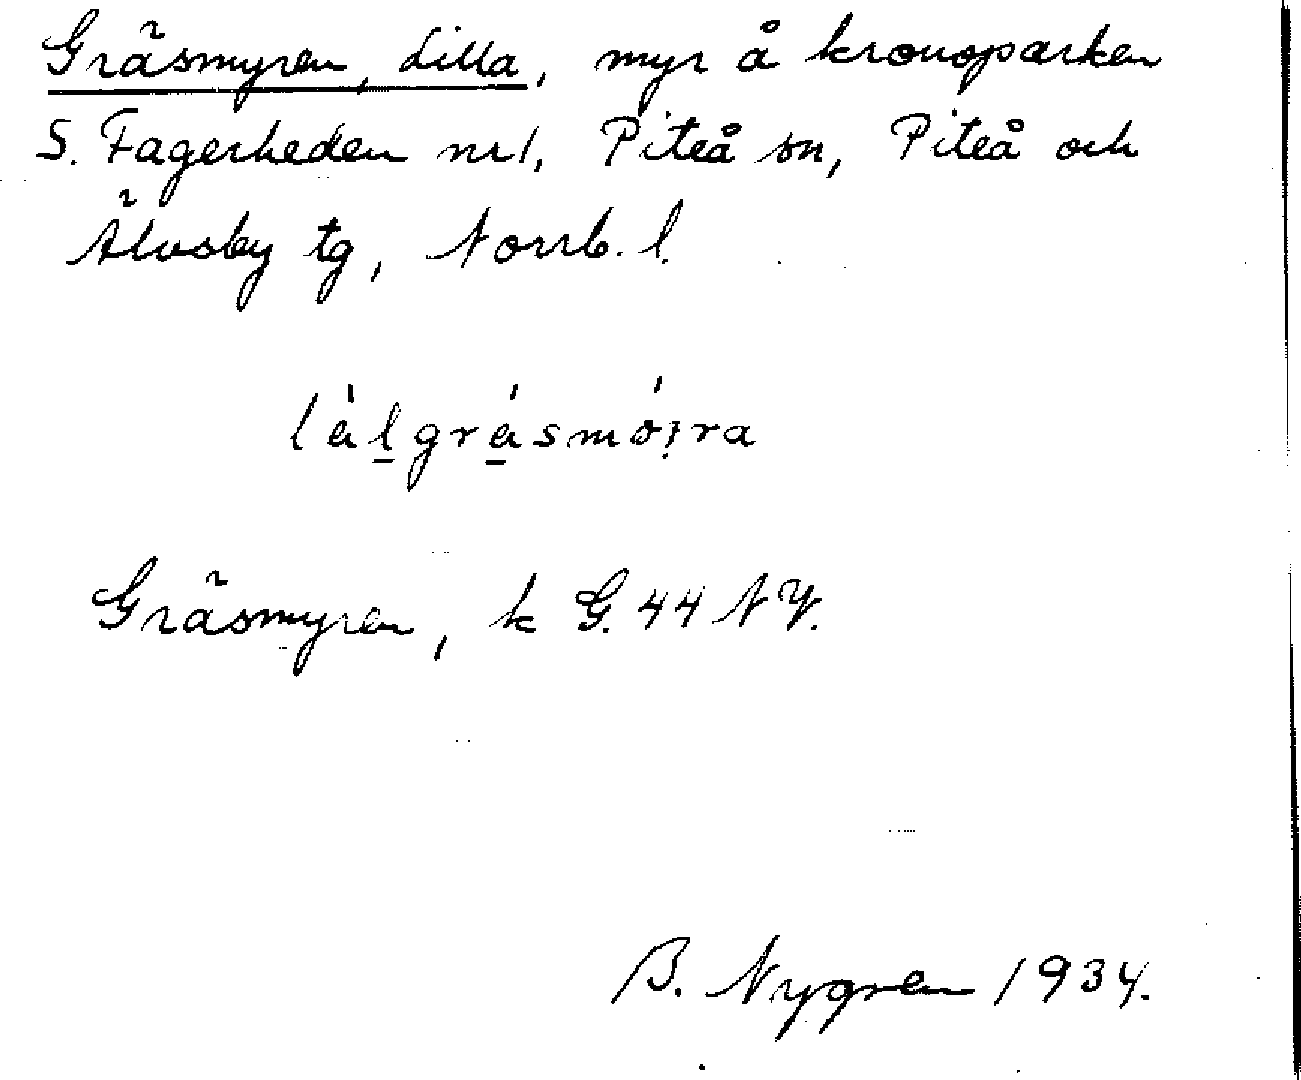 Gräsmyren, Lilla, myr å kronoparken
S. Fagerheden nr 1, Piteå sn, Piteå och
Älvsby tg, Norrb. l.
Gräsmyren, k G. 44 NV.
B. Nygren 1934.